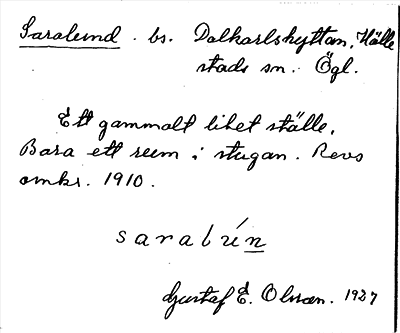 Saralund . bs. Dalkarlshyttan, Hälle
stads sn. Ögl.
Ett gammalt litet ställe,
Bara ett rum i stugan. Revs
omkr. 1910.
saralún
Gustaf E. Olsson. 1927